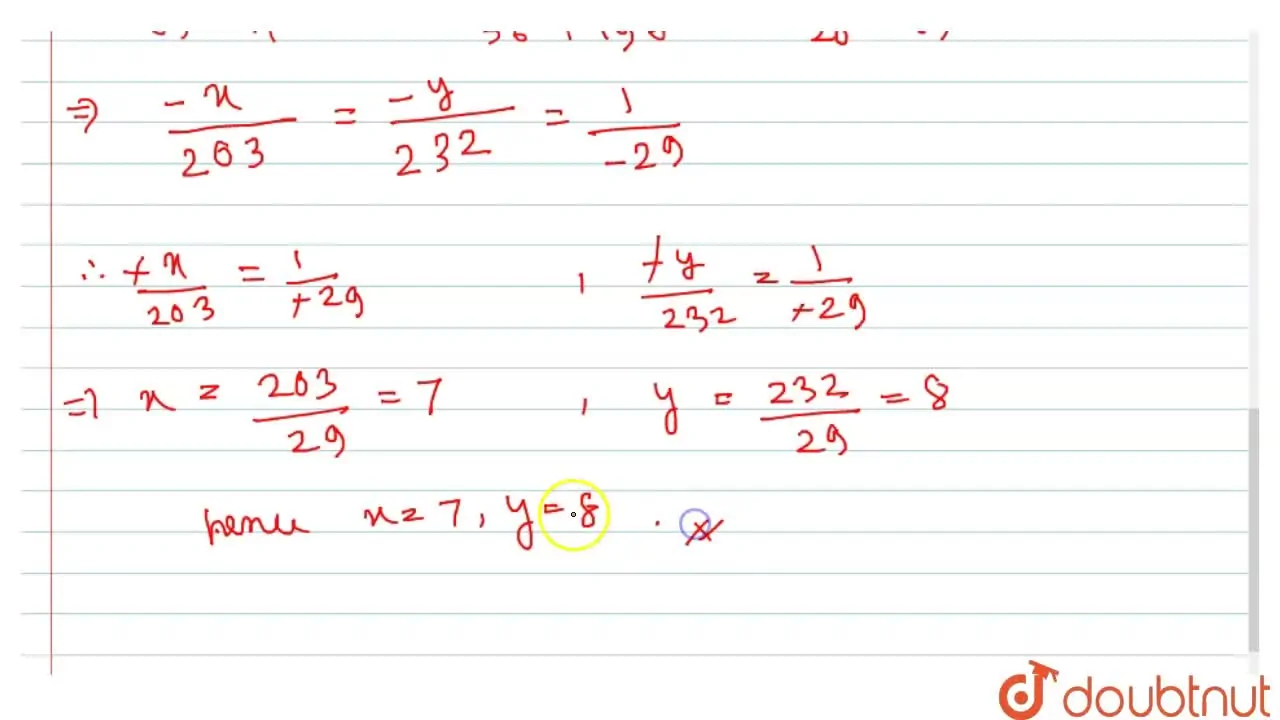 ⇒ -x/203 = -y/232 = 1/-29
∴ +x/203 = 1/+29 , +y/232 = 1/+29
⇒ x = 203/29 = 7 , y = 232/29 = 8
hence x = 7, y = 8 .
doubtnut